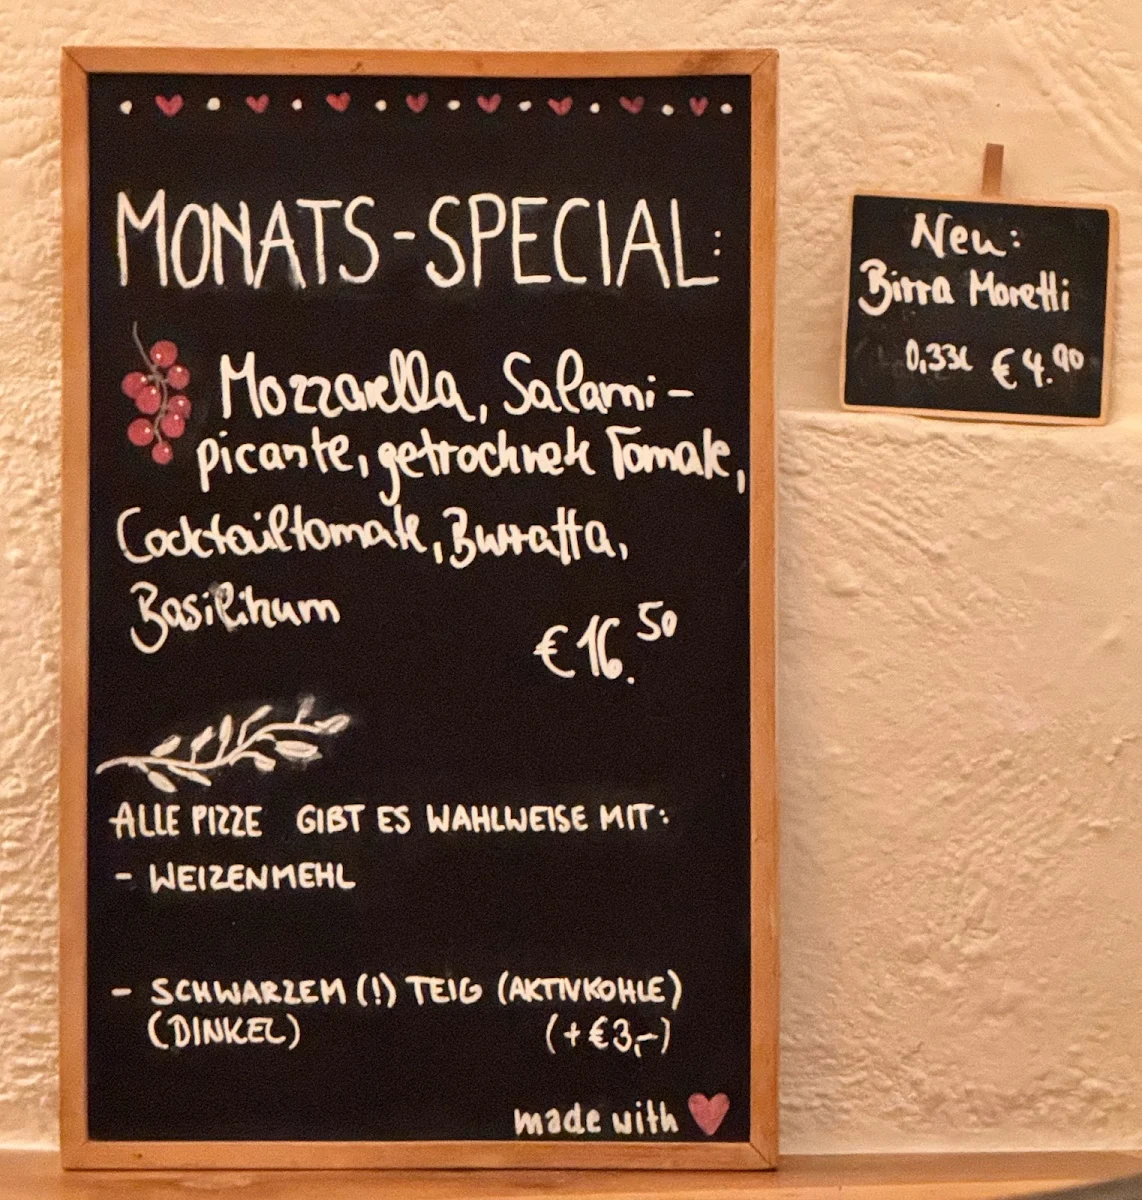 MONATS-SPECIAL:
Mozzarella, Salami-
picante, getrocknete Tomate,
Cocktailtomate, Burratta,
Basilikum
€ 16.50
ALLE PIZZE GIBT ES WAHLWEISE MIT:
- WEIZENMEHL
- SCHWARZEM (!) TEIG (AKTIVKOHLE)
(DINKEL) (+€3,-)
made with
Neu:
Birra Moretti
0,33l € 4.90